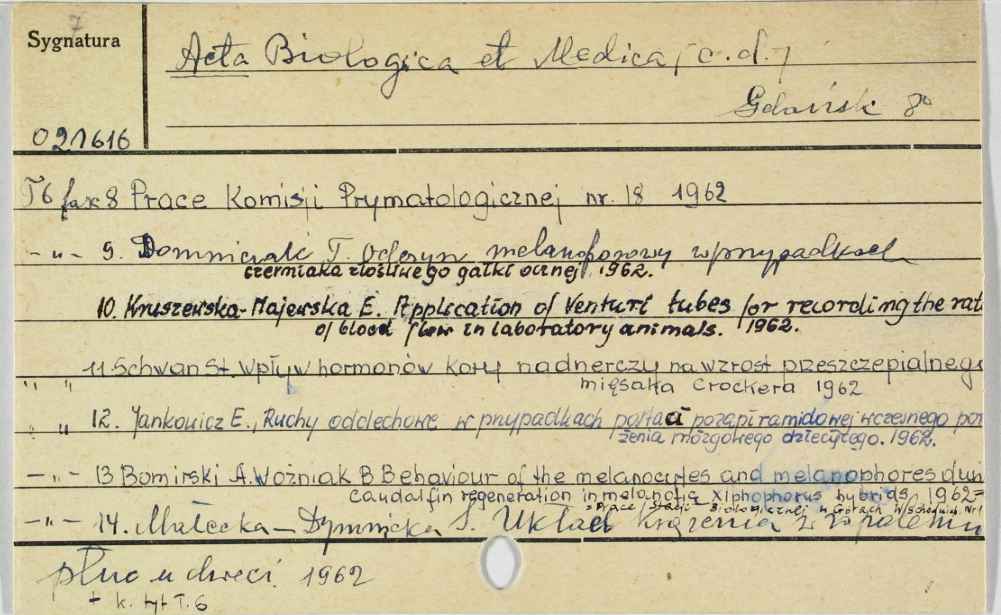 7
Sygnatura
Acta Biologica et Medica (c.d.)
Gdańsk 8°
021616
T6 fax 8 Prace Komisji Prymatologicznej nr. 18 1962
-"- 9. Dominiczak T. Odczyn melanoforowy w przypadkach
czerniaka złośliwego gałki ocznej. 1962.
10. Kruszewska-Majewska E. Application of Venturi tubes for recording the rat
of blood flow in laboratory animals. 1962.
" " 11 Schwan St. Wpływ hormonów kory nadnerczy na wzrost przeszczepialnego
mięsaka Crockera 1962
" " 12. Jankowicz E., Ruchy oddechowe w przypadkach postaci pozapiramidowej wczesnego por
żenia mózgowego dziecięcego. 1962.
-"- 13 Bomirski A. Woźniak B Behaviour of the melanocytes and melanophores duri
caudal fin regeneration in melanotic Xiphophorus hybrids 1962 =
= Prace / Stacji Biologicznej w Górkach Wschodnich. Nr 1
-"- 14. Małecka-Dymnicka S. Układ krążenia z zapaleniu
płuc u dzieci 1962
+ k. tyt T. 6